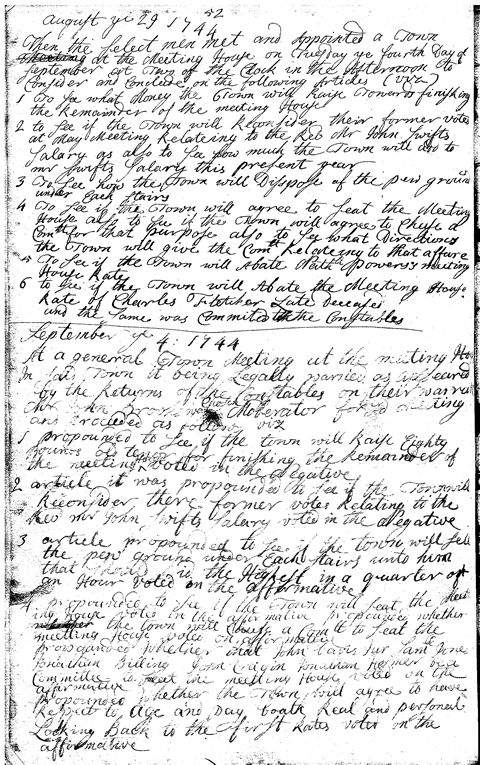 52
August ye 29 1744
Then the Select men met and appointed a Town
Meeting at the Meeting House on Tuesday ye fourth Day of
September at Two of the Clock in the Afternoon to
Consider and Conclude on the following Articles (viz)
1 To See what Money the Town will Raise Towards finishing
the Remainder of the meeting House
2 to See if the Town will Reconsider their former votes
at May Meeting Relateing to the Red Mr John Swifts
Salary as also to See how much the Town will ad to
mr Swifts Salary this present year
3 To See how the Town will Disspose of the pew ground
under Each Stairs
4 To See if the Town will agree to Seat the Meeting
House also to See if the Town will agree to Chuse a
Comtt for that purpose also to See what Directions
the Town will give the Comtt Relateing to that affare
5 To See if the Town will Abate Nath Powerss meeting
House Rate
6 to See if the Town will Abate the Meeting House
Rate of Charles Fletcher Late Deceased
and the Same was Committed to the Constables
September ye 4: 1744
At a generall Town Meeting at the meeting Ho
In Said Town it being Legally warned as appeared
by the Returns of the Constables on their warra
Mr John Moderator for Sd meeting
and proceded as followes viz
1 propounded to See if the town will Raise Eighty
pounds old tenner for finishing the Remainder of
the meeting voted in the Negative
2 article it was propounded to See if the Town will
Reconsider there former votes Relating to the
Red mr John Swifts Salary voted in the Negative
3 article propounded to See if the town will Sell
the pew ground under Each Stairs unto him
that Should the Highest in a quarter of
an Hour voted on the affirmative
4 propounded to See if the Town will Seat the meet
ing House voted in the affirmative propounded whether
the town will Chuse a Comtt to Seat the
meetting House voted on affirmative
propounded whether that John Davis Jur Sam Jones
Jonathan Billing John Cragin Jonathan Hosmer be a
Committee to Seat the meeting House voted on the
affirmative
propounded whether the Town will agree to have
Respect to Age and pay boath Real and personal
Looking Back to the first Rates voted on the
affirmative